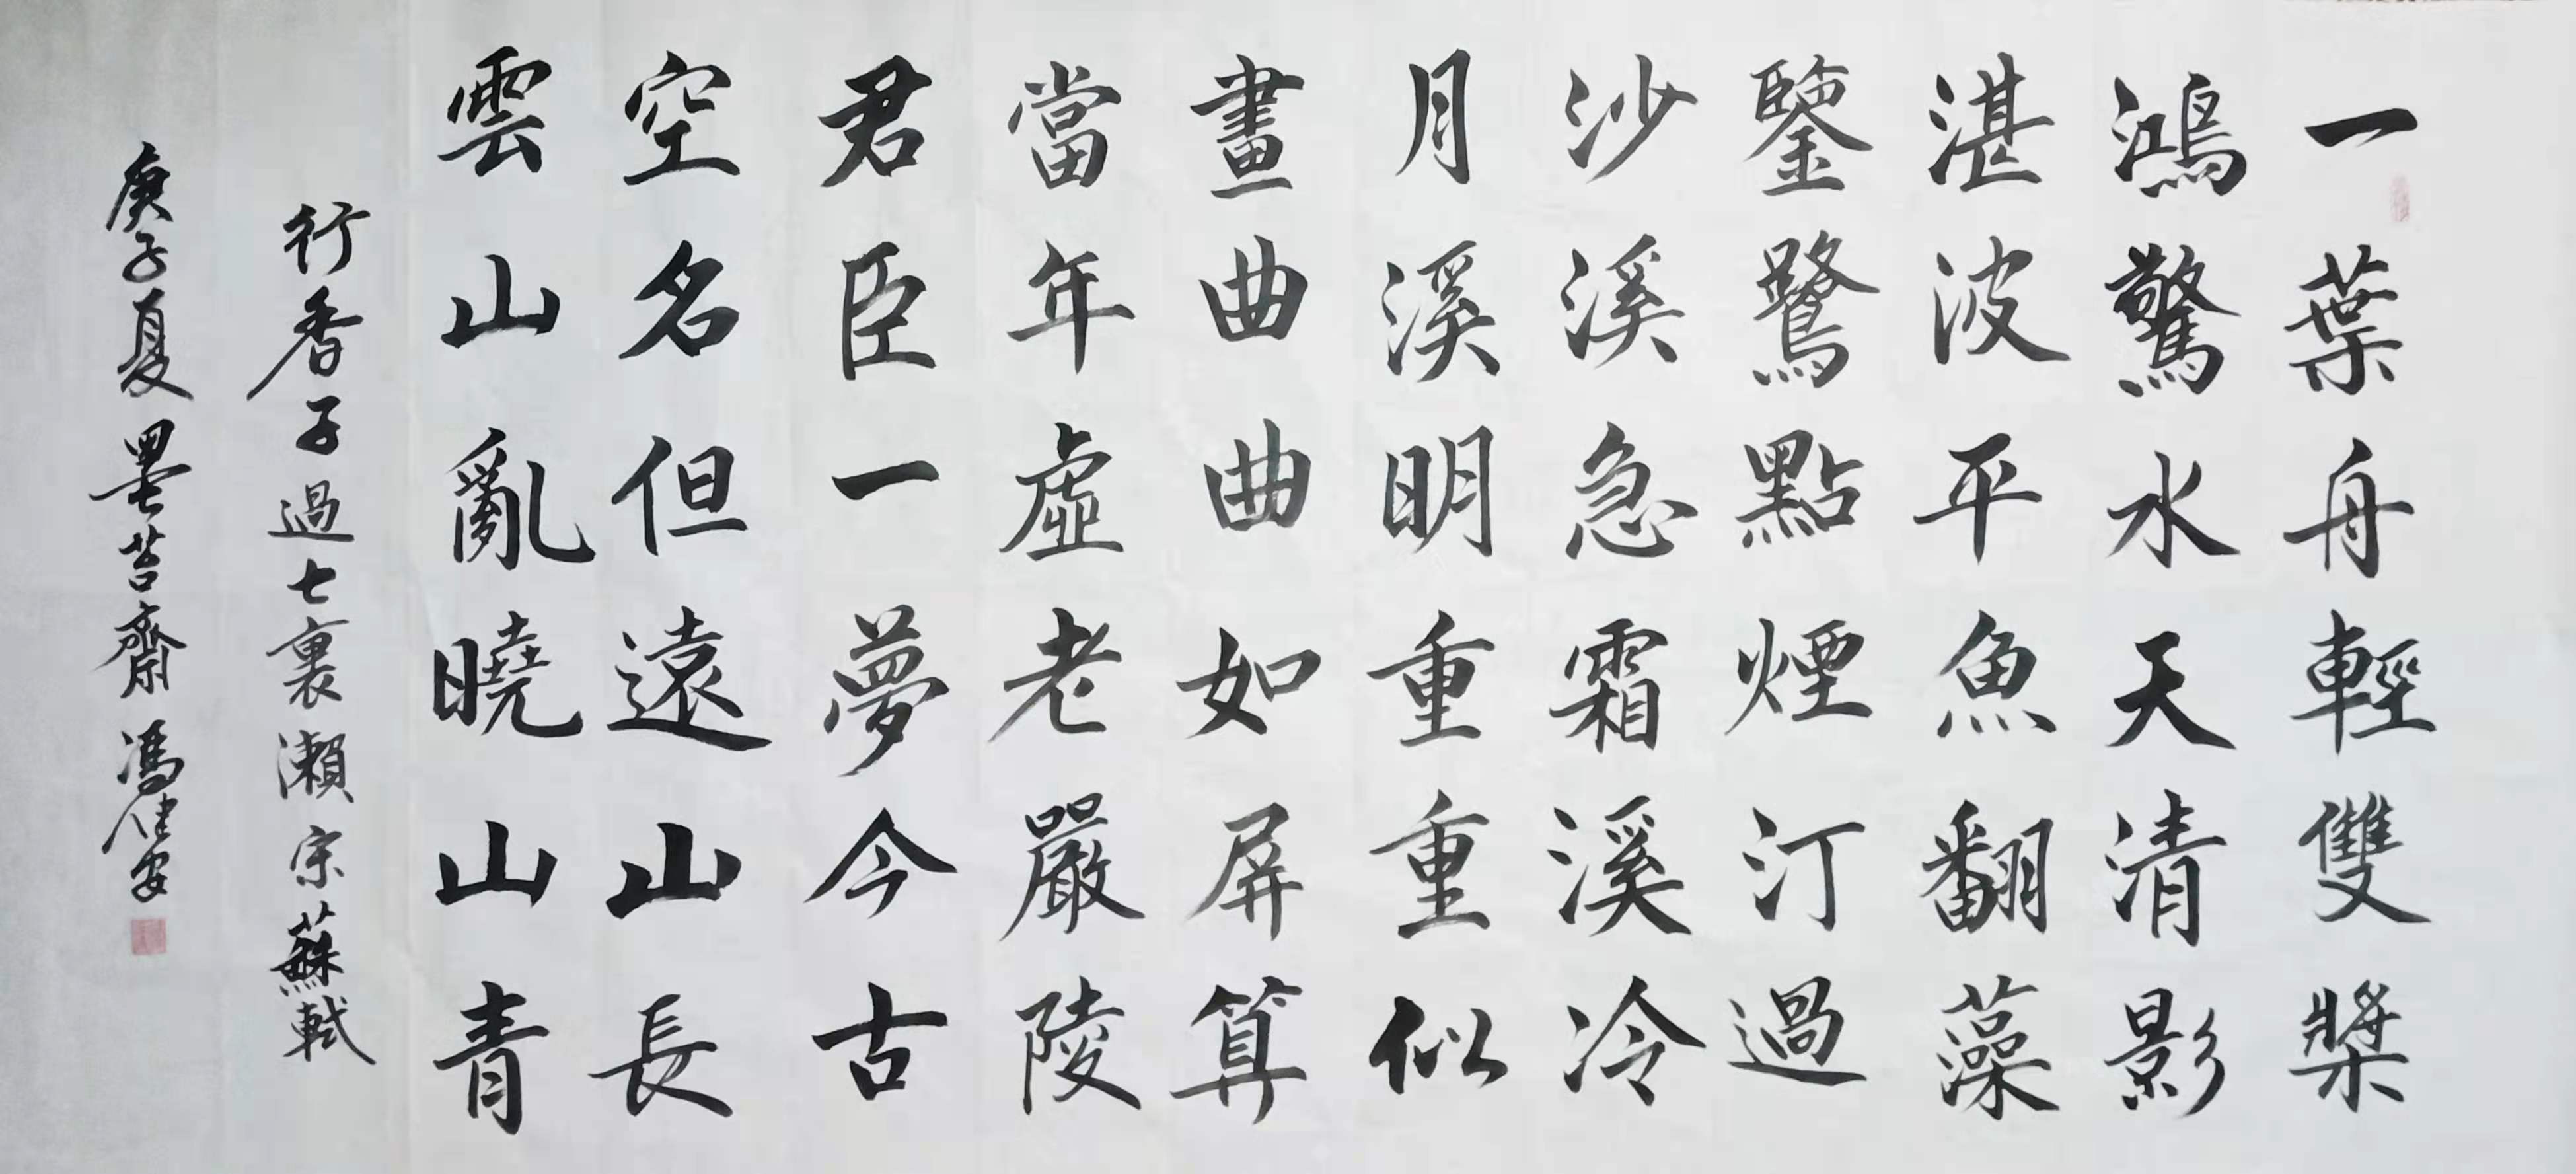 一葉舟輕雙槳
鴻驚水天清影
湛波平魚翻藻
鑒鷺點煙汀過
沙溪急霜溪冷
月溪明重重似
畫曲曲如屏算
當年虛老嚴陵
君臣一夢今古
空名但遠山長
雲山亂曉山青
行香子過七裏瀨宋蘇軾
庚子夏墨苔齋馮健安